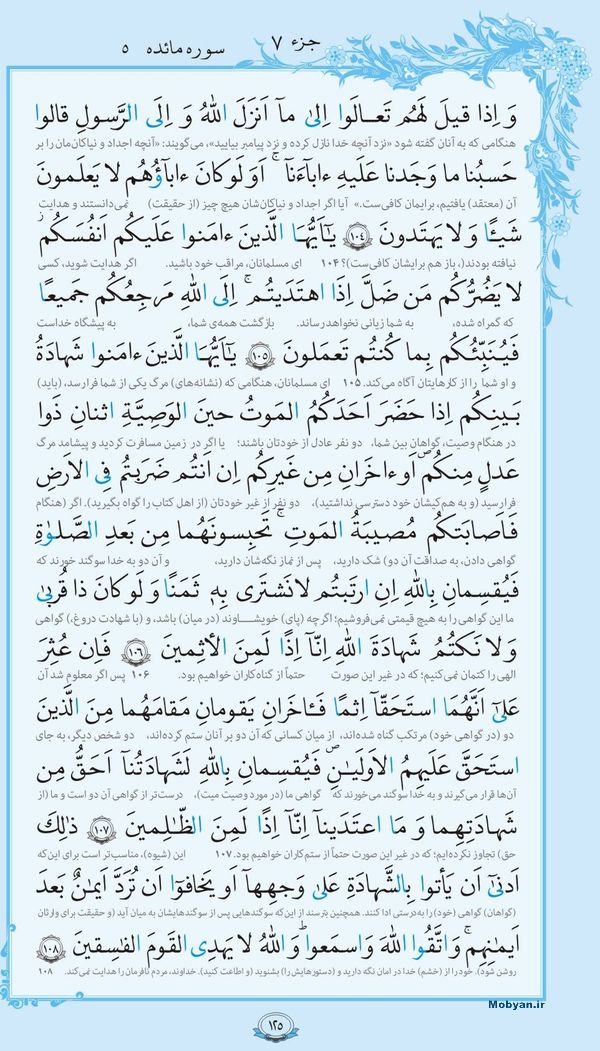 جزء ۷ سوره مائده ۵
وَ اِذا قيلَ لَهُم تَعـالَوا اِلىٰ مآ اَنزَلَ اللّٰهُ وَ اِلَى الرَّسولِ قالوا
هنگامی که به آنان گفته شود «نزد آنچه خدا نازل کرده و نزد پیامبر بیایید»، می‌گویند: «آنچه اجداد و نیاکان‌مان را بر
حَسبُنا ما وَجَدنا عَلَيهِ ءابآءَنآ ۚ اَوَ لَو كانَ ءابآؤُهُم لا يَعلَمونَ
آن (معتقد) یافتیم، برایمان کافی‌ست.» آیا اگر اجداد و نیاکان‌شان هیچ چیز (از حقیقت) نمی‌دانستند و هدایت
شَيـًٔا وَ لا يَهتَدونَ ﴿۱۰۴﴾ يٰٓاَيُّهَا الَّذينَ ءامَنوا عَلَيكُم اَنفُسَكُم ۖ
نیافته بودند(، باز هم برایشان کافی‌ست)؟ ۱۰۴ ای مسلمانان، مراقب خود باشید. اگر هدایت شوید، کسی
لا يَضُرُّكُم مَن ضَلَّ اِذَا اهتَدَيتُم ۚ اِلَى اللّٰهِ مَرجِعُكُم جَميعًا
که گمراه شده، به شما زیانی نخواهد رساند. بازگشت همه‌ی شما، به پیشگاه خداست
فَيُنَبِّئُكُم بِما كُنتُم تَعمَلونَ ﴿۱۰۵﴾ يٰٓاَيُّهَا الَّذينَ ءامَنوا شَهادَةُ
و او شما را از کارهایتان آگاه می‌کند. ۱۰۵ ای مسلمانان، هنگامی که (نشانه‌های) مرگ یکی از شما فرارسد، (باید)
بَينِكُم اِذا حَضَرَ اَحَدَكُمُ المَوتُ حينَ الوَصِيَّةِ اثنانِ ذَوا
در هنگام وصیت، گواهان بین شما، دو نفر عادل از خودتان باشند؛ یا اگر در زمین مسافرت کردید و پیشامد مرگ
عَدلٍ مِنكُم اَو ءاخَرانِ مِن غَيرِكُم اِن اَنتُم ضَرَبتُم فِى الاَرضِ
فرارسید (و به هم‌کیشان خود دسترسی نداشتید)، دو نفر از غیر خودتان (از اهل کتاب را گواه بگیرید). اگر (هنگام
فَاَصابَتكُم مُصيبَةُ المَوتِ ۚ تَحبِسونَهُما مِن بَعدِ الصَّلوٰةِ
گواهی دادن، به صداقت آن دو) شک دارید، پس از نماز نگه‌شان دارید، و آن دو به خدا سوگند خورند که
فَيُقسِمانِ بِاللّٰهِ اِنِ ارتَبتُم لا نَشتَرى بِهٖ ثَمَنًا وَ لَو كانَ ذا قُربىٰ ۙ
ما این گواهی را به هیچ قیمتی نمی‌فروشیم؛ اگرچه (پای) خویشـاوند (در میان) باشد، و (با شهادت دروغ،) گواهی
وَ لا نَكتُمُ شَهادَةَ اللّٰهِ اِنّآ اِذًا لَمِنَ الأٰثِمينَ ﴿۱۰۶﴾ فَاِن عُثِرَ
الهی را کتمان نمی‌کنیم؛ که در غیر این صورت حتماً از گناه‌کاران خواهیم بود. ۱۰۶ پس اگر معلوم شد آن
عَلىٰٓ اَنَّهُمَا استَحَقّآ اِثمًا فَـٔاخَرانِ يَقومانِ مَقامَهُما مِنَ الَّذينَ
دو (در گواهی خود) مرتکب گناه شده‌اند، از میان کسانی که آن دو بر آنان ستم کرده‌اند، دو شخص دیگر، به جای
استَحَقَّ عَلَيهِمُ الاَولَيٰنِ فَيُقسِمانِ بِاللّٰهِ لَشَهادَتُنآ اَحَقُّ مِن
آن‌ها قرار می‌گیرند و به خدا سوگند می‌خورند که گواهی ما (در مورد وصیت میت)، درست‌تر از گواهی آن دو است و ما (از
شَهادَتِهِما وَ مَا اعتَدَينآ اِنّآ اِذًا لَمِنَ الظّٰلِمينَ ﴿۱۰۷﴾ ذٰلِكَ
حق) تجاوز نکرده‌ایم؛ که در غیر این صورت حتماً از ستم‌کاران خواهیم بود. ۱۰۷ این (شیوه)، مناسب‌تر است برای این‌که
اَدنىٰٓ اَن يَأتوا بِالشَّهادَةِ عَلىٰ وَجهِهآ اَو يَخافوٓا اَن تُرَدَّ اَيمٰنٌ بَعدَ
(گواهان) گواهی (خود) را به‌درستی ادا کنند. همچنین بترسند از این‌که سوگندهایی پس از سوگندهایشان به میان آید (و حقیقت برای وارثان
اَيمٰنِهِم ۗ وَ اتَّقُوا اللّٰهَ وَ اسمَعوا ۗ وَ اللّٰهُ لا يَهدِى القَومَ الفٰسِقينَ ﴿۱۰۸﴾
روشن شود). خود را از (خشم) خدا در امان نگه دارید و (دستورهایش را) بشنوید (و اطاعت کنید). خداوند، مردم نافرمان را هدایت نمی‌کند. ۱۰۸
Mobyan.ir
۱۲۵